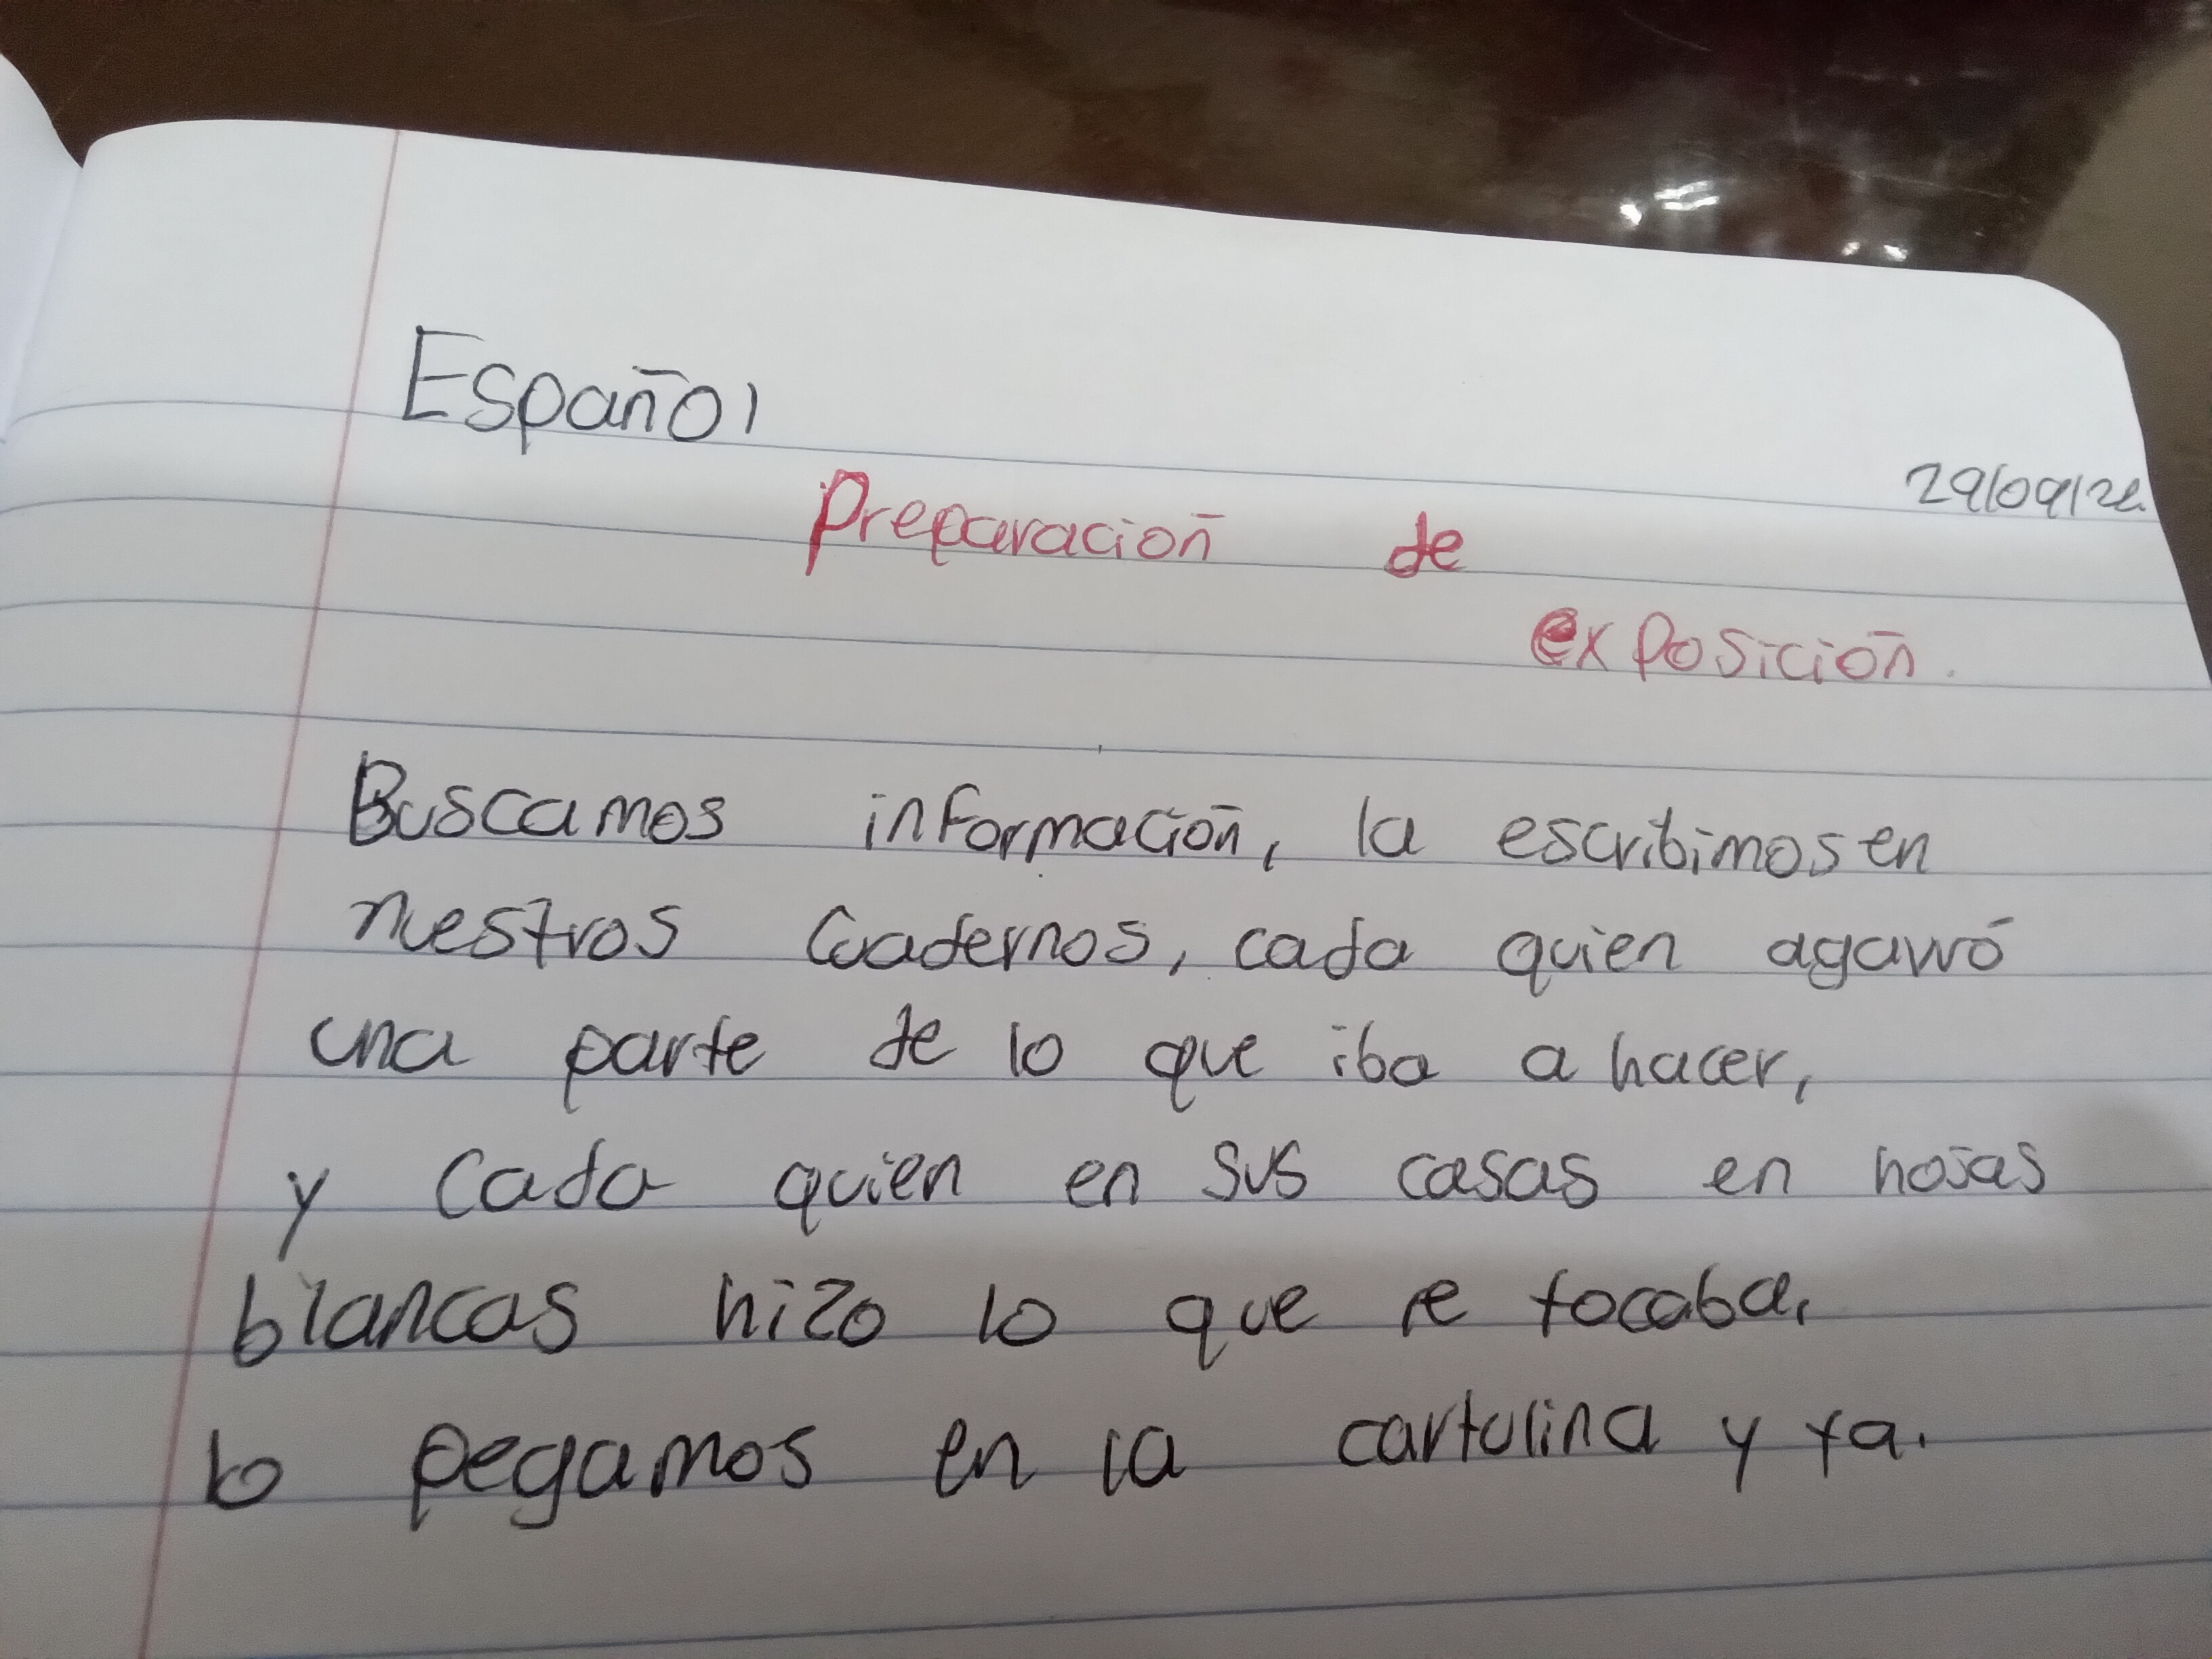 Español
29/09/22
Preparación de
exposición.
Buscamos información, la escribimos en
nuestros cuadernos, cada quien agarró
una parte de lo que iba a hacer,
y cada quien en sus casas en hojas
blancas hizo lo que le tocaba,
lo pegamos en la cartulina y ya.